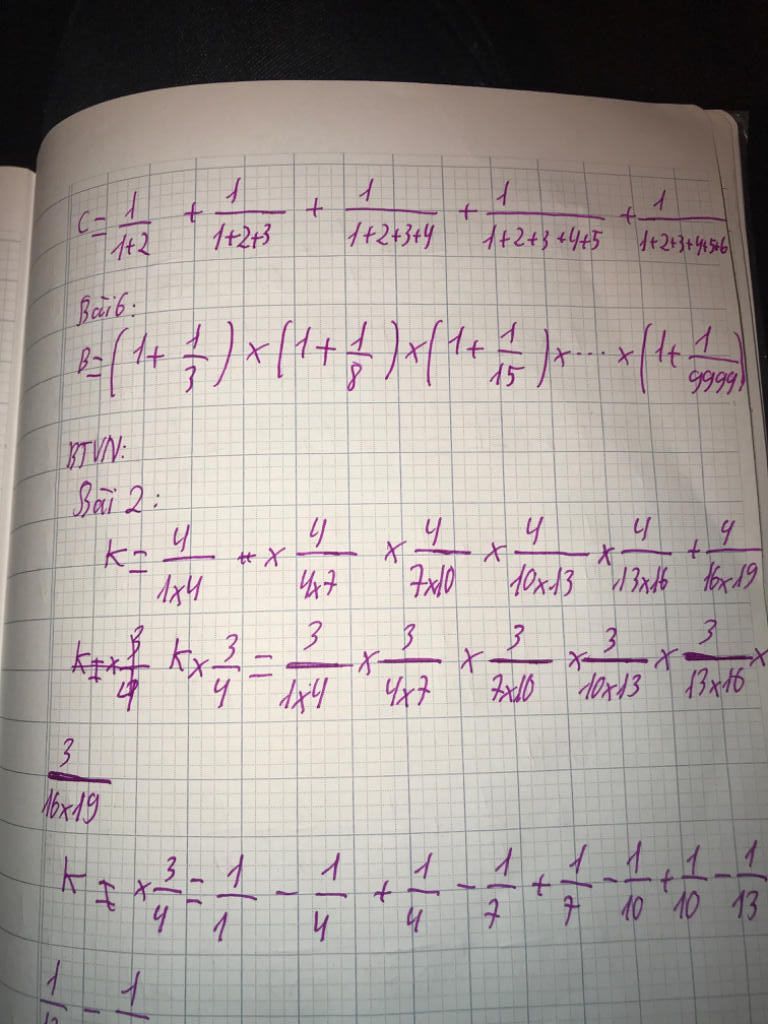 C = 1/(1+2) + 1/(1+2+3) + 1/(1+2+3+4) + 1/(1+2+3+4+5) + 1/(1+2+3+4+5+6)
Bài 6:
B = (1 + 1/3) × (1 + 1/8) × (1 + 1/15) × ... × (1 + 1/9999)
BTVN:
Bài 2:
K = 4/(1×4) × 4/(4×7) × 4/(7×10) × 4/(10×13) × 4/(13×16) + 4/(16×19)
K × 3/4 = 3/(1×4) × 3/(4×7) × 3/(7×10) × 3/(10×13) × 3/(13×16) ×
3/(16×19)
K × 3/4 = 1/1 - 1/4 + 1/4 - 1/7 + 1/7 - 1/10 + 1/10 - 1/13